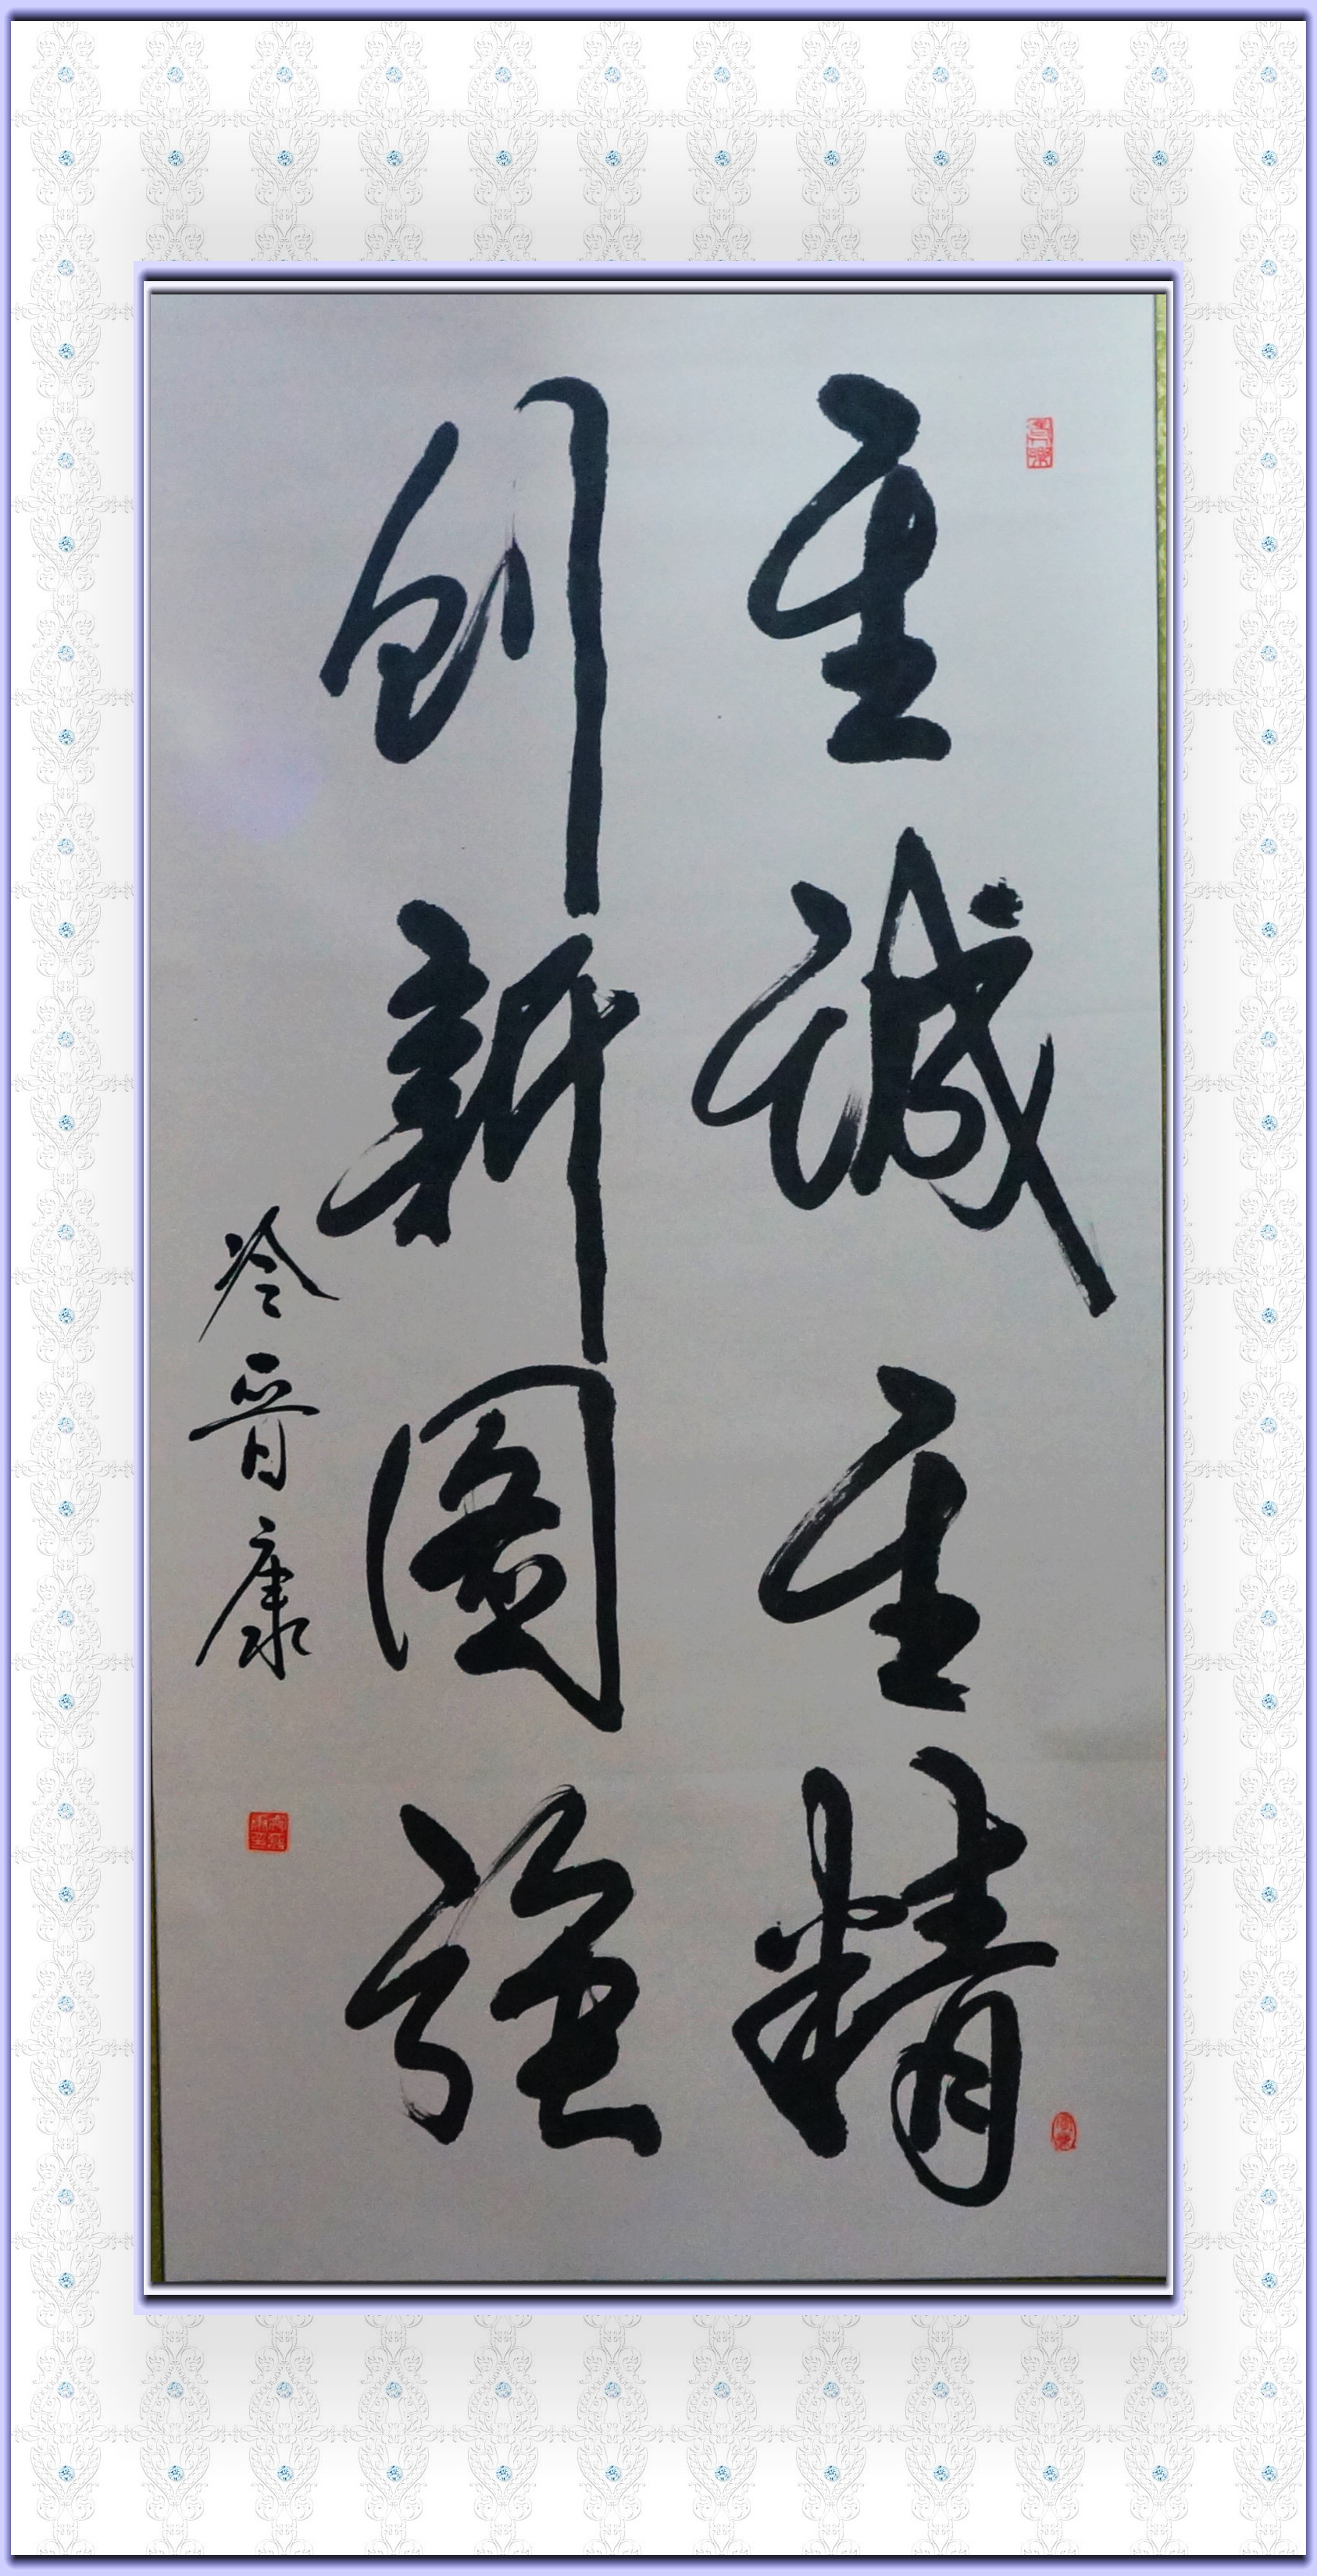 至誠至精
創新圖強
冷晋康